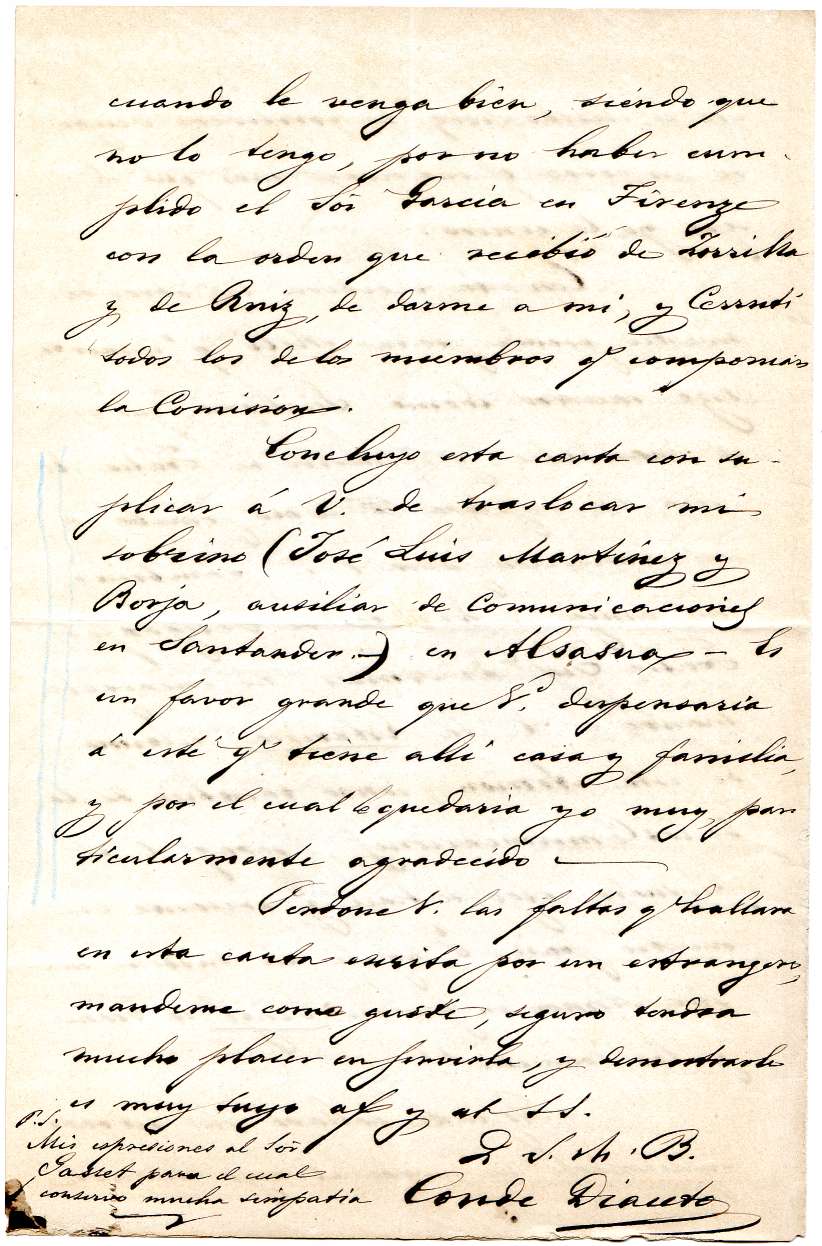 cuando le venga bien, siendo que
no lo tengo, por no haber cum-
plido el Sor Garcia en Firenze
con la orden que recibió de Zorrilla
y de Ruiz, de darme a mi, y Cerruti
todos los de los miembros q compornian
la Comision.
Concluyo esta carta con su-
plicar á V. de traslocar mi
sobrino (José Luis Martinez y
Borja, ausiliar de Comunicaciones
en Santander.-) en Alsasua - Es
un favor grande que V. dispensaria
á esté q tiene allí casa y familia,
y por el cual le quedaria yo muy par
ticularmente agradecido
Perdone V. las faltas q hallara
en esta carta escrita por un estrangero,
mandeme como guste, seguro tendra
mucho placer en servirla, y demostrarle
es muy suyo af y at SS.
Q S. M. B.
Conde
P.S.
Mis espresiones al Sor
Gasset para el cual
conservo mucha simpatia